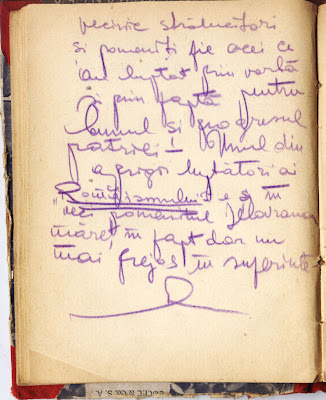 vecinic strălucitori
și pomeniți fie acei ce
au luptat prin vorbă
și prin faptă pentru
bunul și progresul
patriei — Unul din
aprigii luptători ai
Românismului e și în
veci pomenitul
măreț în fapt dar nu
mai prejos în suferințe